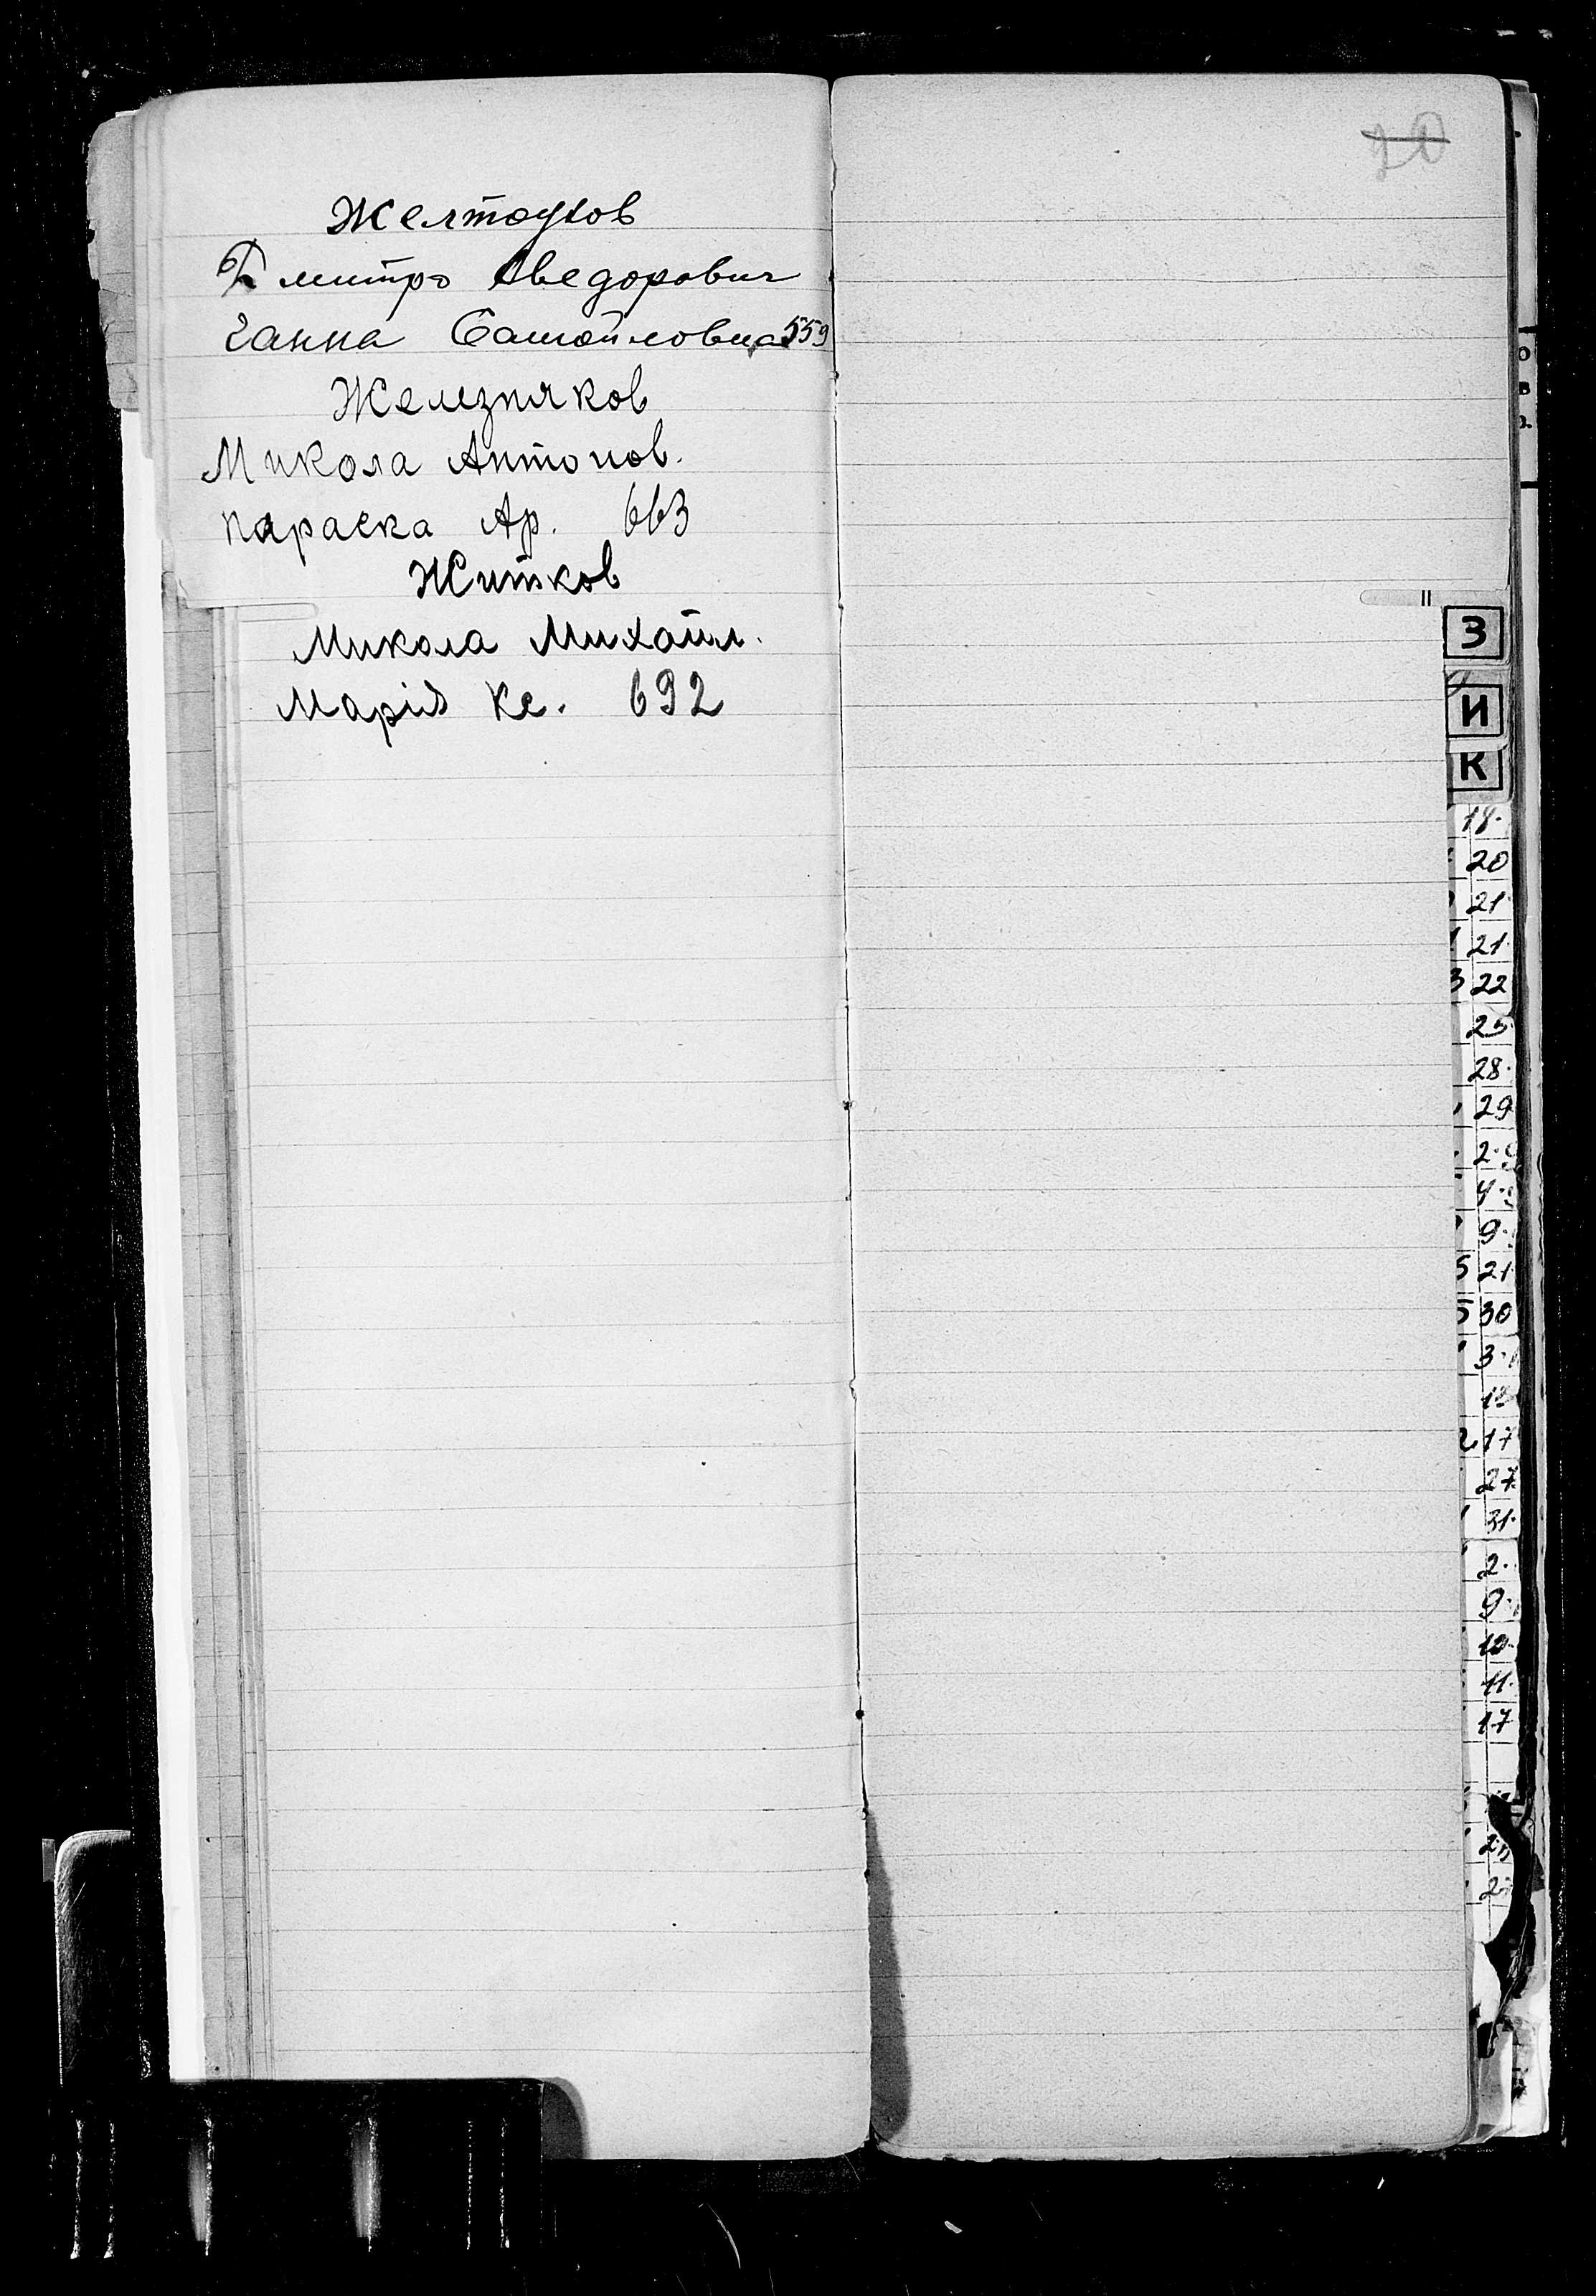 Желтоухов
Дмитро Хведорович
Ганна Самойловна 559
Железняков
Микола Антонов.
Параска Ар. 663
Житков
Микола Михайл.
Марія Кс. 692
З
И
К
18.
20
21
21
3 22
25
28.
29
9.
5 21
5 30
3.
2 17
27
31.
2.
9.
10.
11.
17